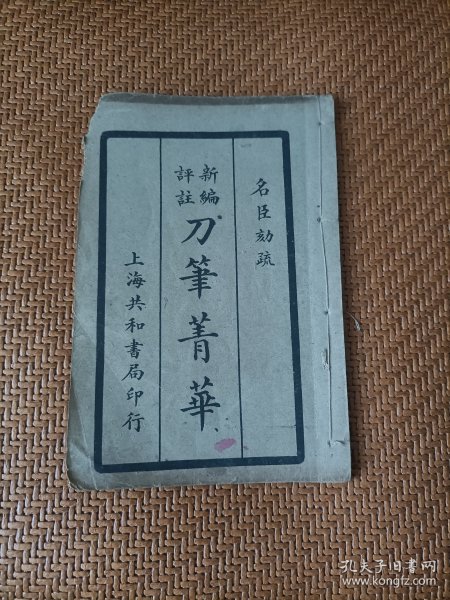 名臣劾疏
新編
評註
刀筆菁華
上海共和書局印行
孔夫子旧书网
www.kongfz.com